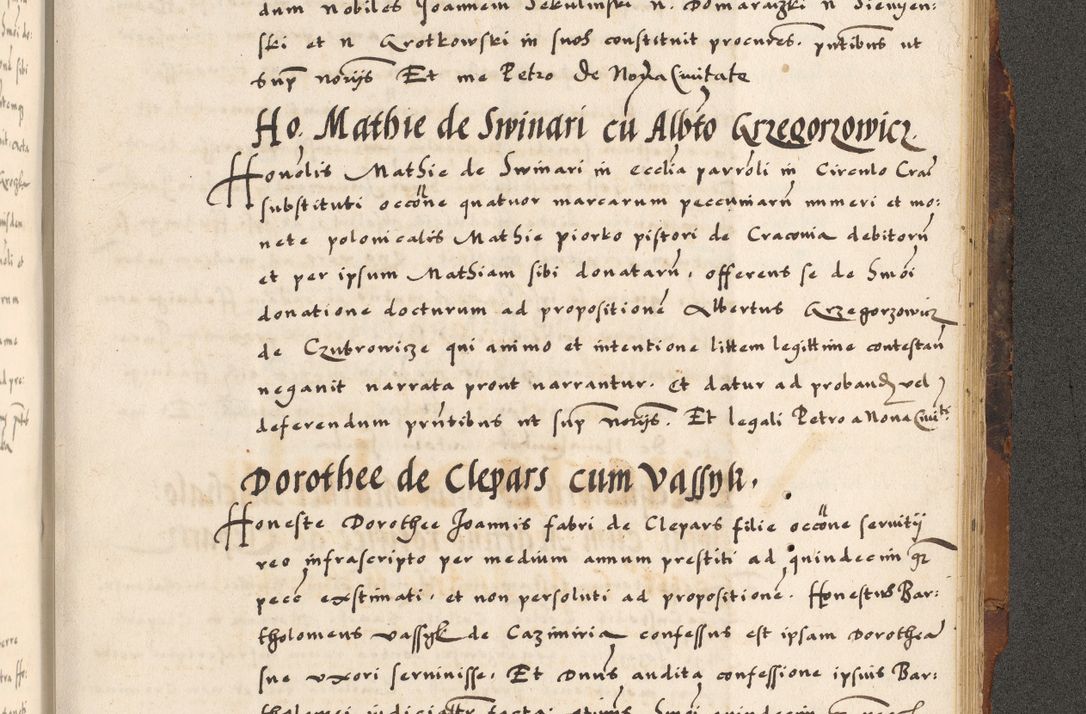 dum Nobiles Joannem Sekulinski N. Domaraczki N Sienyen:
ski et N Grotkowski in suos constituit procures. pntibus ut
supra noriis Et me Petro De Nova Civitate
Ho. Mathie de Swinari cu Albto Grzegorzowicz.
Honolis Mathie de Swinari in ecclia parroli in Circulo Crac
substituti occone quatuor marcarum peccuniaru numeri et mo:
nete polonicalis Mathie Piorko pistori de Cracovia debitoru
et per ipsum Mathiam sibi donataru, offerens se de Smoi
donatione docturum ad propositione Albertus Grzegorzowicz
de Czubrowicze qui animo et intentione littem legittime contestan
negavit narrata prout narrantur. Et datur ad proband vel
deferendum prntibus ut sup noriis. Et legali Petro a Nova Civit.
Dorothee de Clepars cum Vassyk.
Honeste Dorothee Joannis fabri de Clepars filie occone servitii
reo infrascripto per medium annum prestiti ad quindecim gr
pecc existimati, et non persoluti ad propositione. Honestus Bar:
tholomeus Vassyk de Cazimiria confessus est ipsam Dorothea
sue uxori servivisse. Et Dnus audita confessione ipsius Bar:
tholomei iudicialiter facta